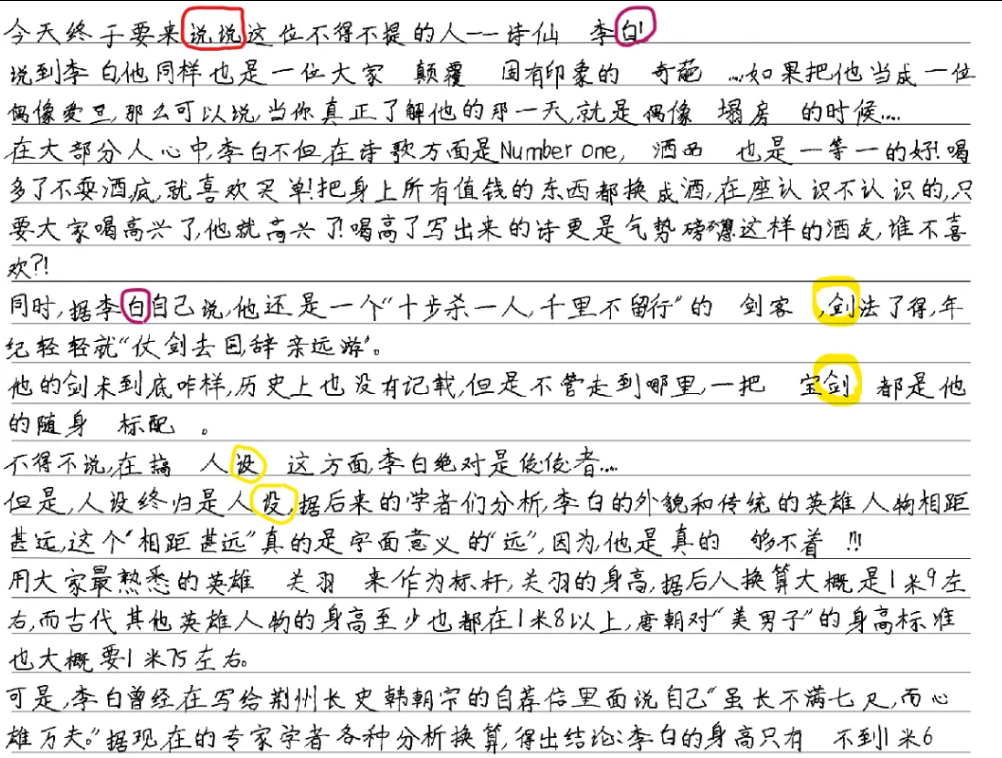 今天终于要来说说这位不得不提的人--诗仙 李白!
说到李白他同样也是一位大家 颠覆 固有印象的 奇葩 ...如果把他当成一位
偶像爱豆,那么可以说,当你真正了解他的那一天,就是偶像 塌房 的时候....
在大部分人心中,李白不但在诗歌方面是Number one, 酒品 也是一等一的好!喝
多了不耍酒疯,就喜欢买单!把身上所有值钱的东西都换成酒,在座认识不认识的,只
要大家喝高兴了,他就高兴了!喝高了写出来的诗更是气势磅礴,这样的酒友,谁不喜
欢?!
同时,据李白自己说,他还是一个"十步杀一人,千里不留行"的 剑客 ,剑法了得,年
纪轻轻就"仗剑去国,辞亲远游"。
他的剑术到底咋样,历史上也没有记载,但是不管走到哪里,一把 宝剑 都是他
的随身 标配 。
不得不说,在搞 人设 这方面,李白绝对是佼佼者...
但是,人设终归是人设,据后来的学者们分析,李白的外貌和传统的英雄人物相距
甚远,这个"相距甚远"真的是字面意义的"远",因为,他是真的 够不着 !!!
用大家最熟悉的英雄 关羽 来作为标杆,关羽的身高,据后人换算大概是1米9左
右,而古代其他英雄人物的身高至少也都在1米8以上,唐朝对"美男子"的身高标准
也大概要1米75左右。
可是,李白曾经在写给荆州长史韩朝宗的自荐信里面说自己"虽长不满七尺,而心
雄万夫。"据现在的专家学者各种分析换算,得出结论:李白的身高只有 不到1米6